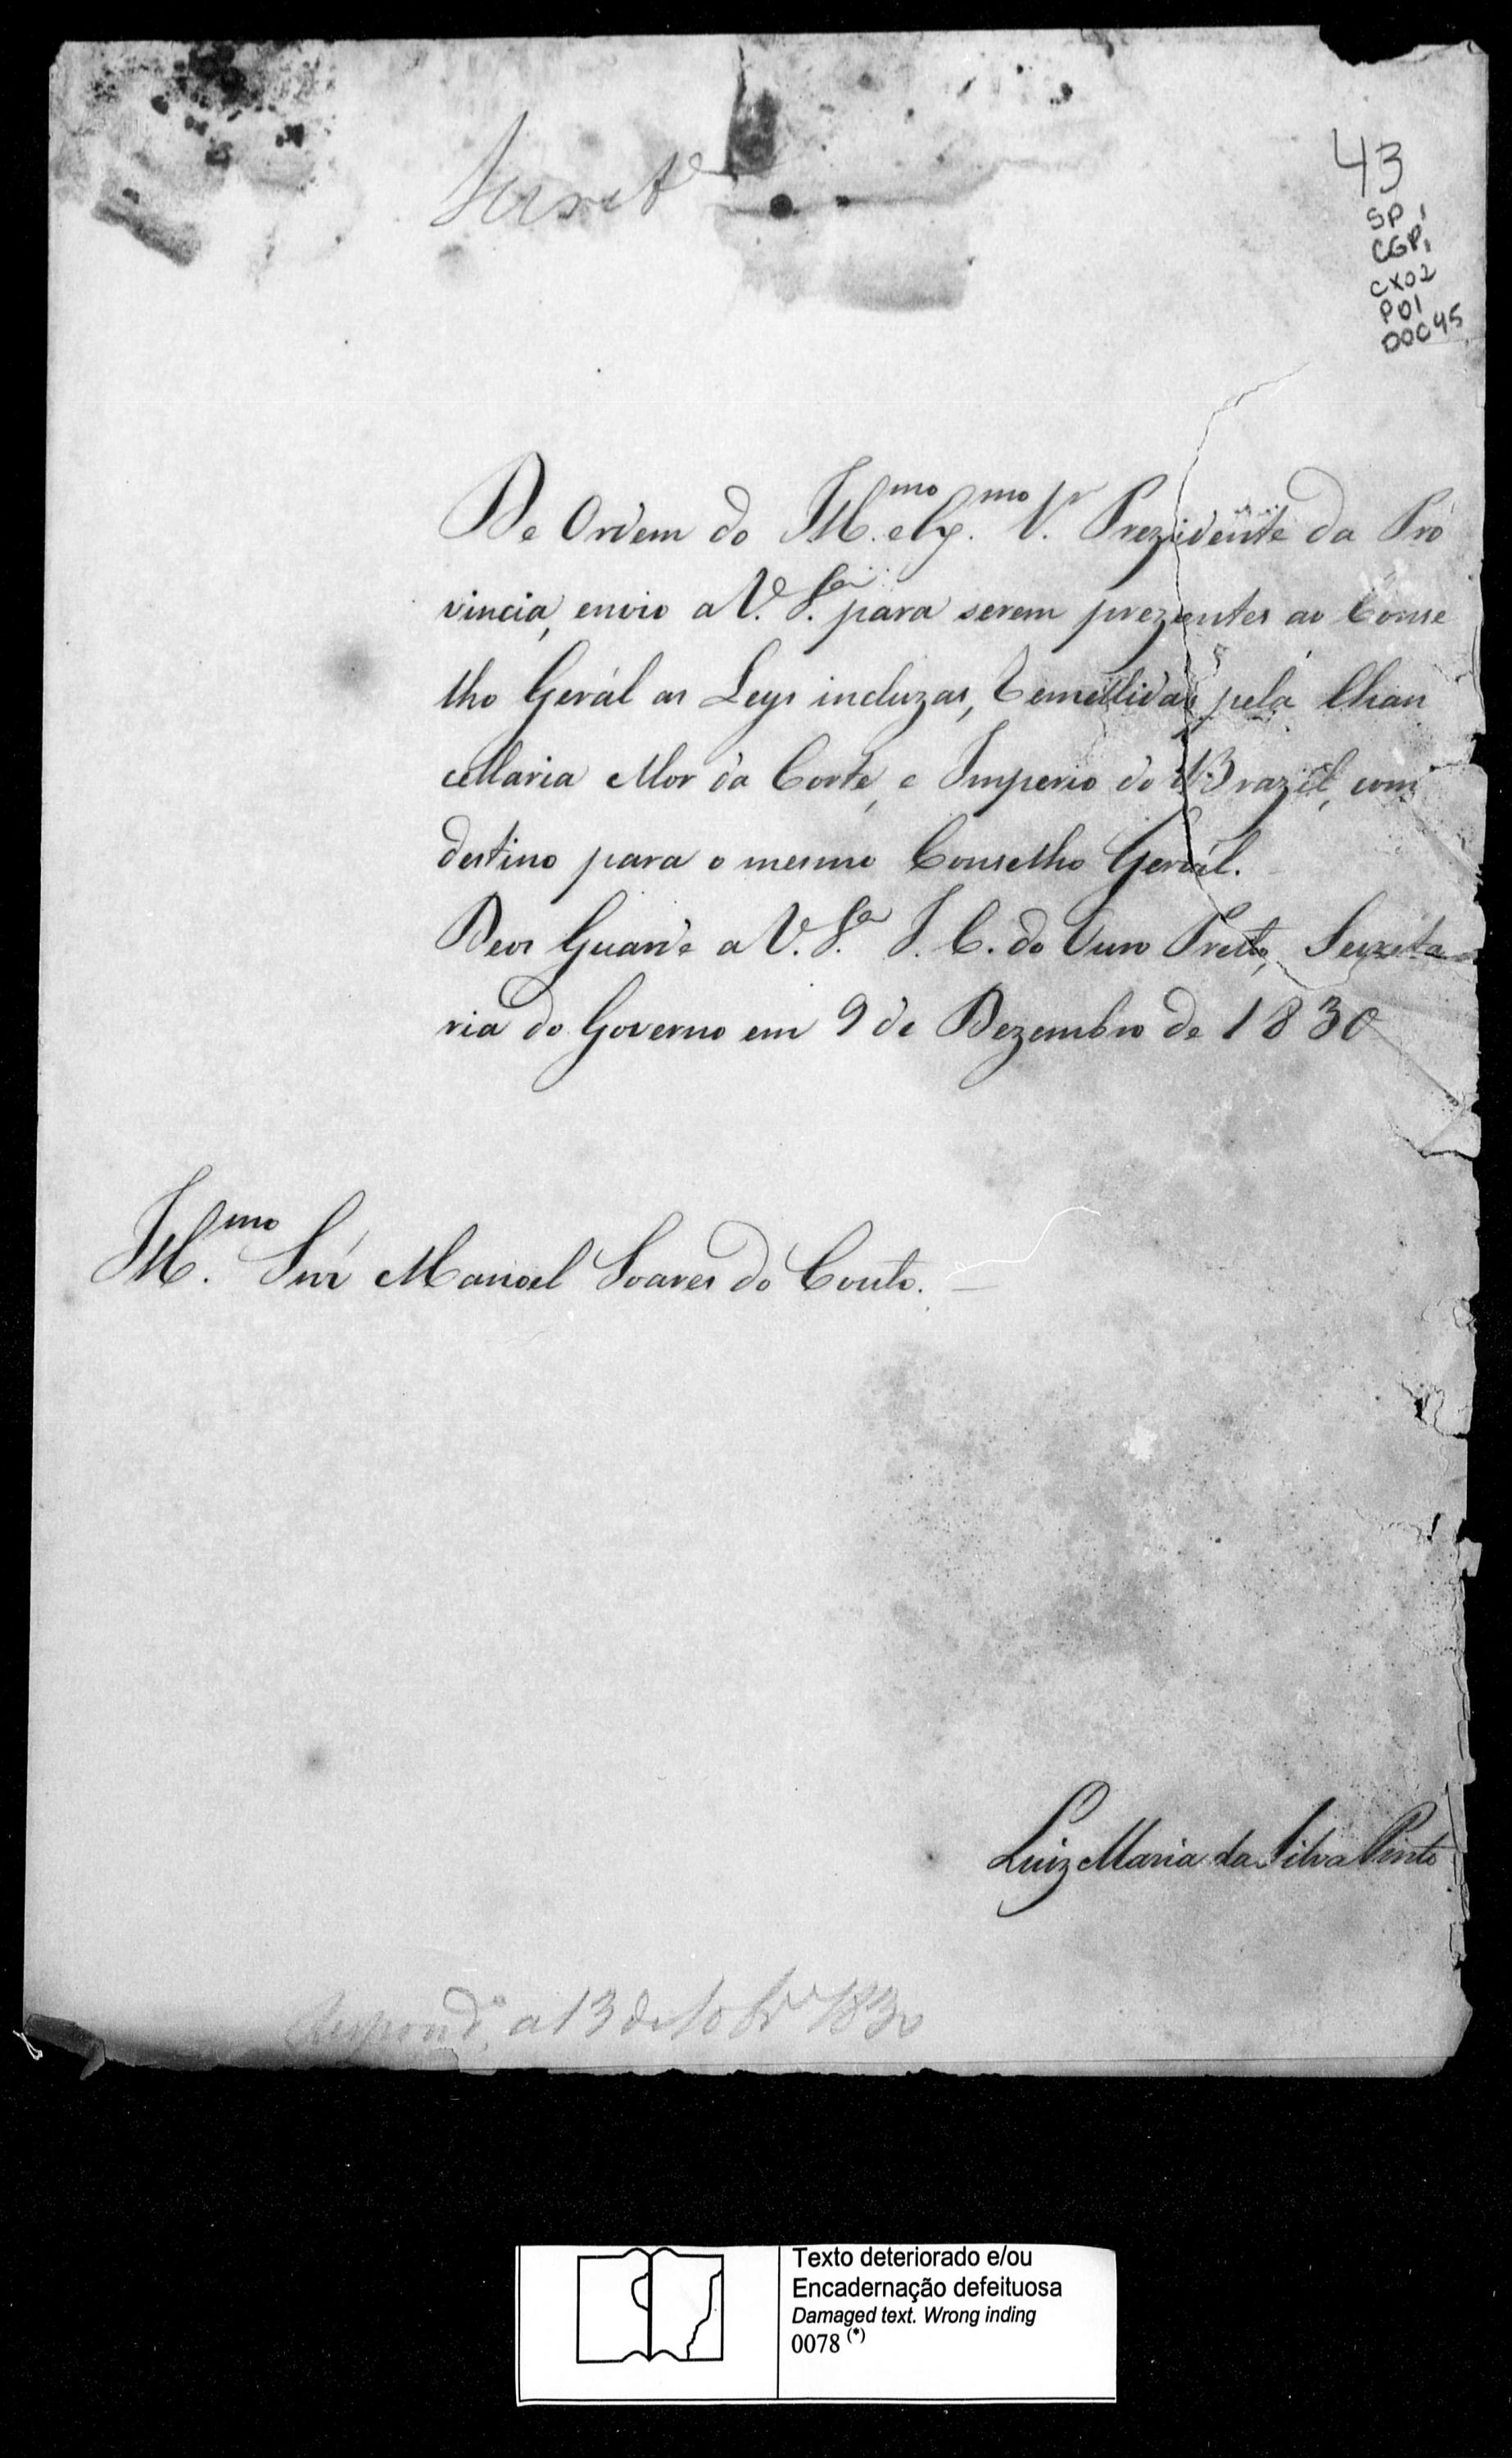 Secret.ª
43
SP,
CGP,
CX02
P01
DOC45
De Ordem do Ill.mo e Ex.mo Sr. Prezidente da Pro
vincia, envio a V. S.ª para serem prezentes ao Conse
lho Gerál as Leys incluzas, remettidas pela Chan
cellaria Mor da Corte, e Imperio do Brazil, com
destino para o mesmo Conselho Gerál.
Deos Guarde a V. S.ª I. C. do Ouro Preto, Secreta
ria do Governo em 9 de Dezembro de 1830
Ill.mo Snr. Manoel Soares do Couto.
Luiz Maria da Silva Pinto
Respond.ª a 13 de 10br.º 1830
Texto deteriorado e/ou
Encadernação defeituosa
Damaged text. Wrong inding
0078 (*)